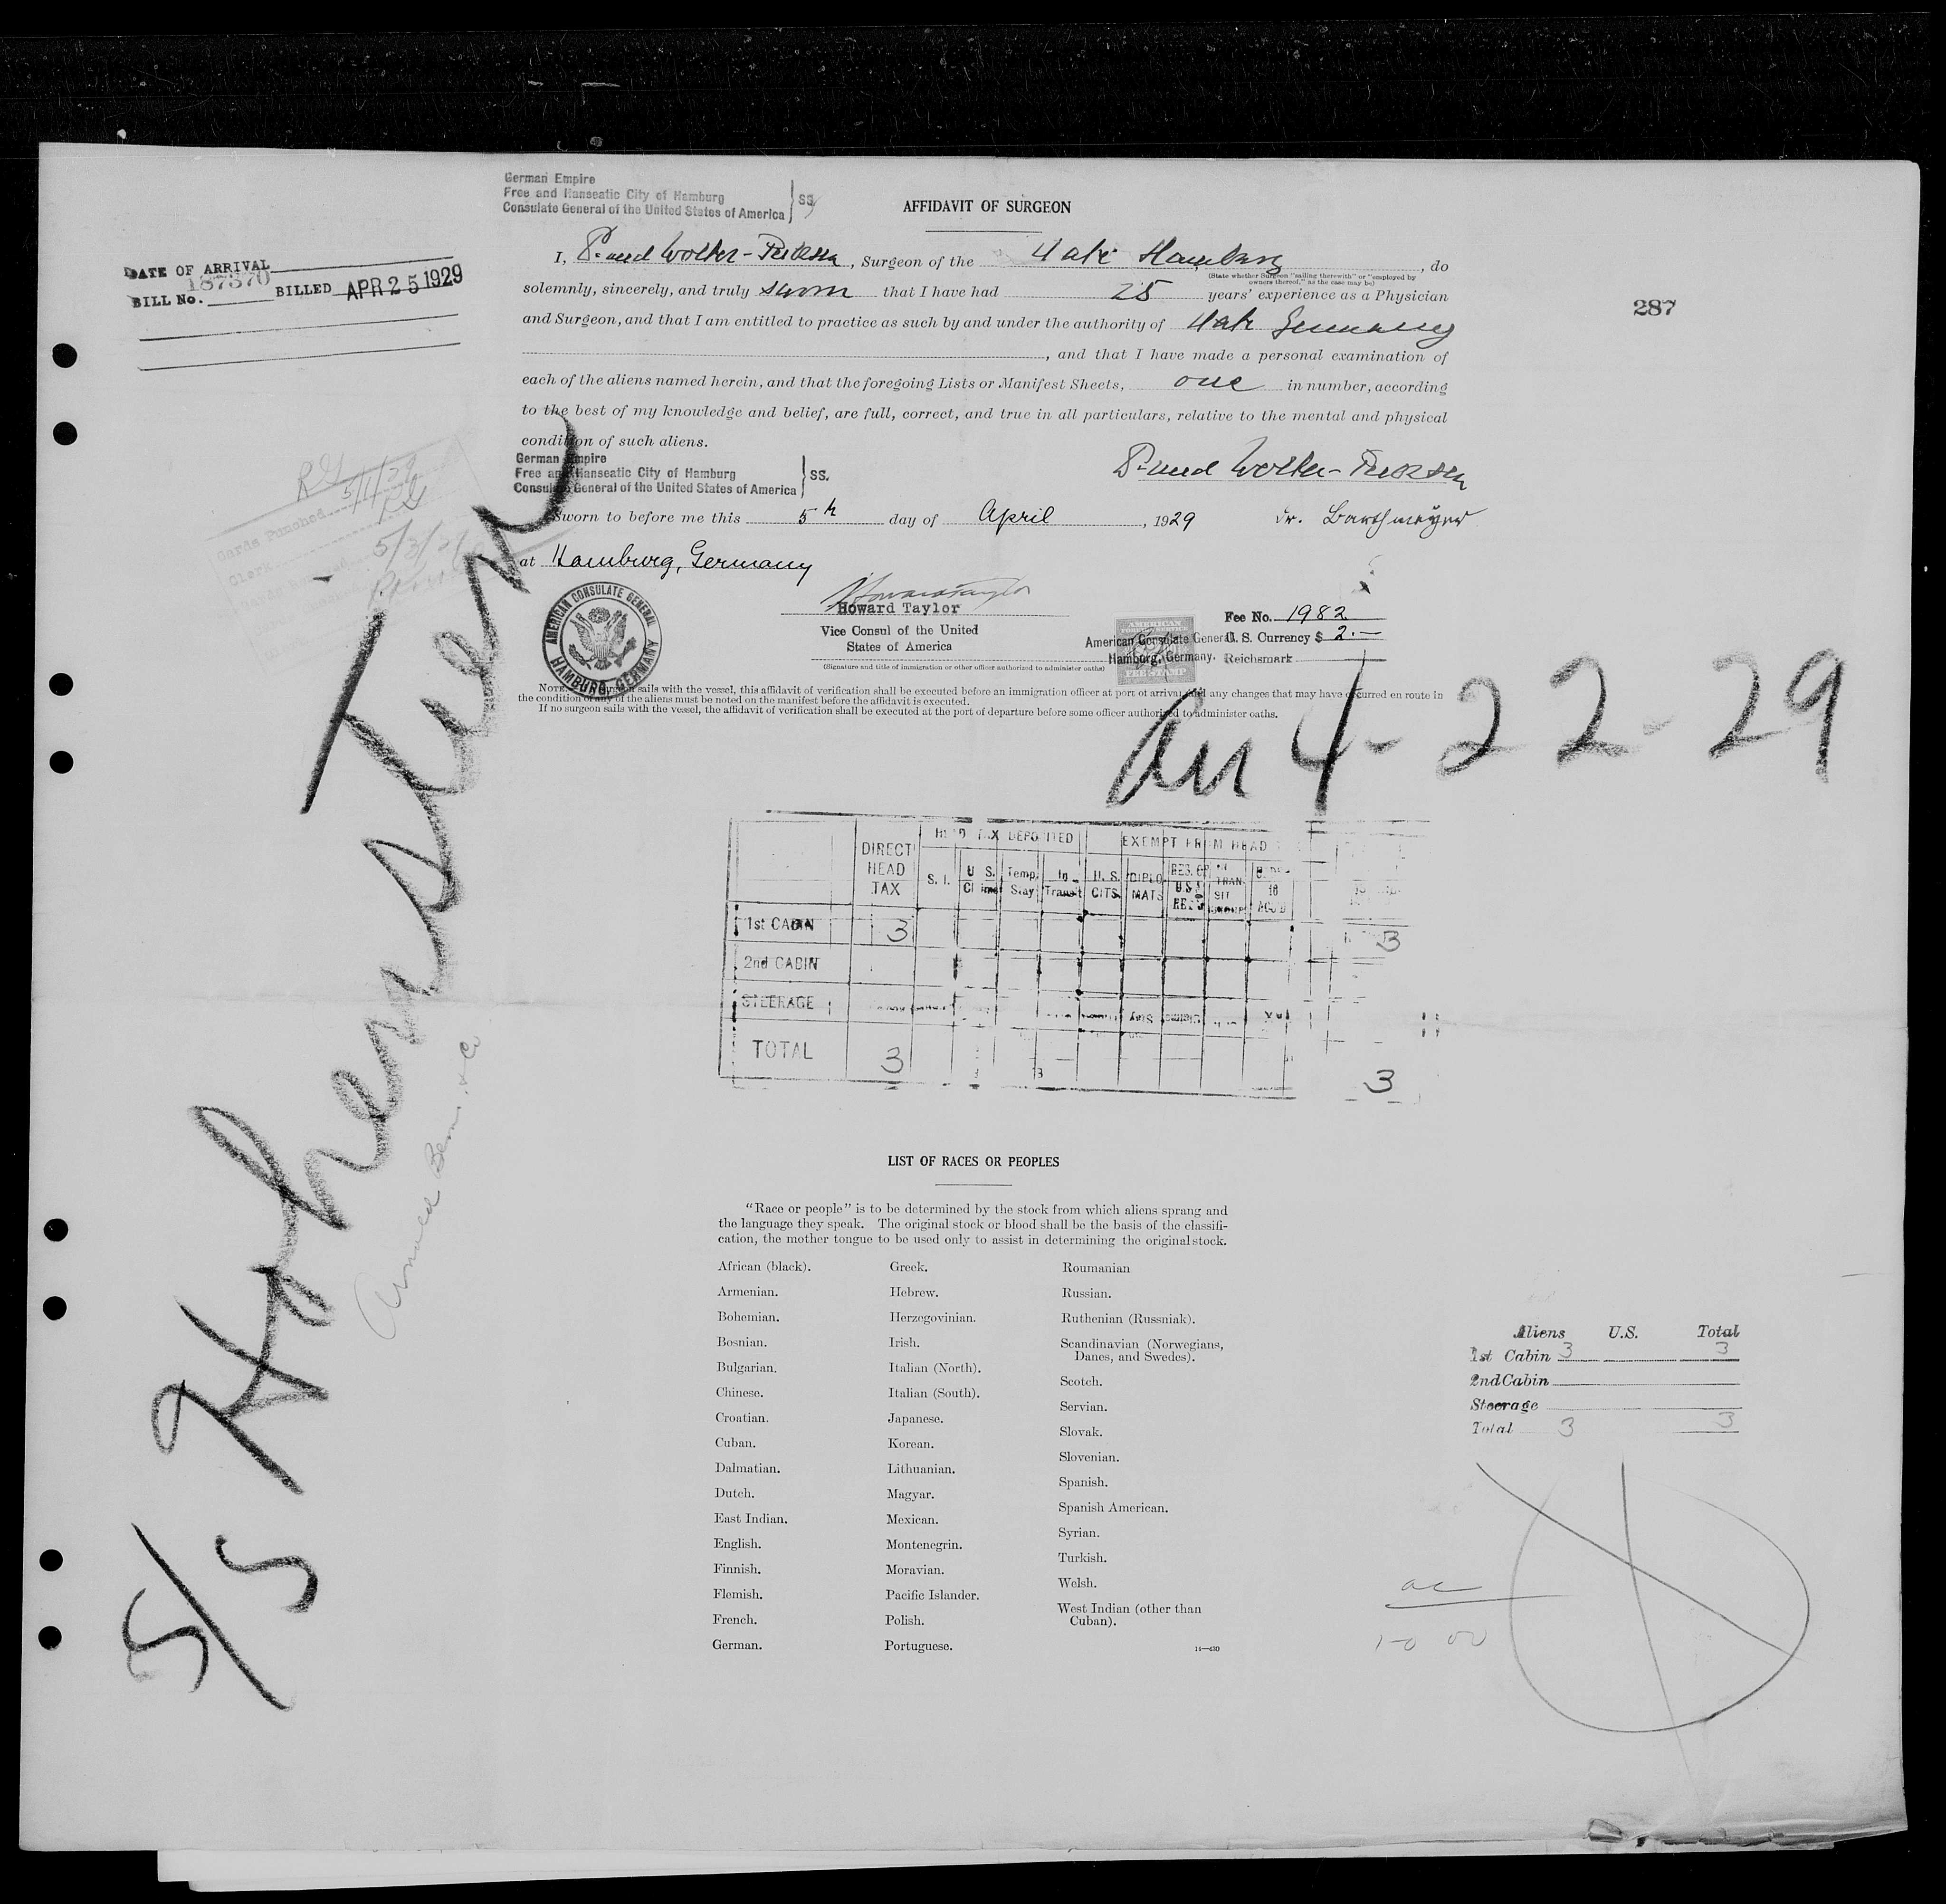 German Empire
Free and Hanseatic City of Hamburg
Consulate General of the United States of America } SS
AFFIDAVIT OF SURGEON
DATE OF ARRIVAL
187370
BILL No. BILLED APR 25 1929
287
I, , Surgeon of the State Hamburg, do
(State whether Surgeon "sailing therewith" or "employed by
owners thereof," as the case may be)
solemnly, sincerely, and truly sworn that I have had 25 years' experience as a Physician
and Surgeon, and that I am entitled to practice as such by and under the authority of State Germany
, and that I have made a personal examination of
each of the aliens named herein, and that the foregoing Lists or Manifest Sheets, one in number, according
to the best of my knowledge and belief, are full, correct, and true in all particulars, relative to the mental and physical
condition of such aliens.
German Empire
Free and Hanseatic City of Hamburg
Consulate General of the United States of America } SS.
Sworn to before me this 5th day of April, 1929
at Hamburg, Germany
Howard Taylor
Howard Taylor
Vice Consul of the United
States of America
(Signature and title of immigration or other officer authorized to administer oaths)
AMERICAN CONSULATE GENERAL
HAMBURG, GERMANY
American Consulate General
Hamburg, Germany.
FEE STAMP
Fee No. 1982
U. S. Currency $ 2.—
Reichsmark
NOTE.—If surgeon sails with the vessel, this affidavit of verification shall be executed before an immigration officer at port of arrival and any changes that may have occurred en route in
the condition of any of the aliens must be noted on the manifest before the affidavit is executed.
If no surgeon sails with the vessel, the affidavit of verification shall be executed at the port of departure before some officer authorized to administer oaths.
Cards Punched
Clerk
5/1/29
Arr 4-22-29
S/S Hohenstein
Arnold Bern. & Co
DIRECT HEAD TAX
HEAD TAX DEPOSITED
EXEMPT FROM HEAD
S. I. U. S. Temp. Stay In Transit U. S. CITS DIPLOMATS
1st CABIN 3 3
2nd CABIN
STEERAGE
TOTAL 3 3
LIST OF RACES OR PEOPLES
"Race or people" is to be determined by the stock from which aliens sprang and
the language they speak. The original stock or blood shall be the basis of the classifi-
cation, the mother tongue to be used only to assist in determining the original stock.
African (black).
Armenian.
Bohemian.
Bosnian.
Bulgarian.
Chinese.
Croatian.
Cuban.
Dalmatian.
Dutch.
East Indian.
English.
Finnish.
Flemish.
French.
German.
Greek.
Hebrew.
Herzegovinian.
Irish.
Italian (North).
Italian (South).
Japanese.
Korean.
Lithuanian.
Magyar.
Mexican.
Montenegrin.
Moravian.
Pacific Islander.
Polish.
Portuguese.
Roumanian
Russian.
Ruthenian (Russniak).
Scandinavian (Norwegians,
Danes, and Swedes).
Scotch.
Servian.
Slovak.
Slovenian.
Spanish.
Spanish American.
Syrian.
Turkish.
Welsh.
West Indian (other than
Cuban).
14—430
Aliens U.S. Total
1st Cabin 3 3
2nd Cabin
Steerage
Total 3 3